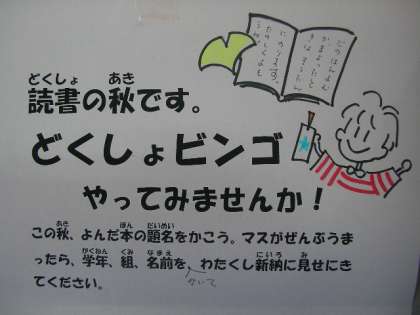 どくしょ あき
読書の秋です。
どくしょビンゴ
やってみませんか！
あき ほん だいめい
この秋、よんだ本の題名をかこう。マスがぜんぶうま
がくねん くみ なまえ にいろ み
ったら、学年、組、名前を、わたくし新納に見せにき
かいて
てください。